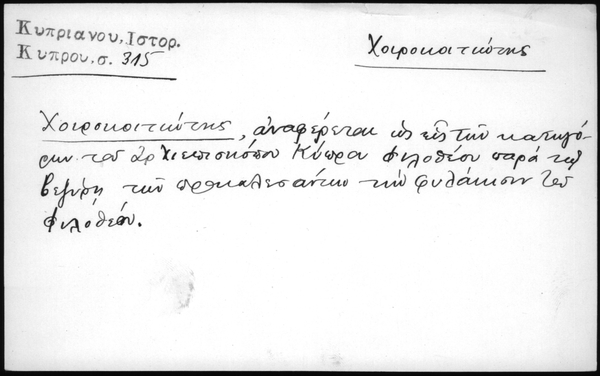 Κυπριανου, Ιστορ.
Κυπρου, σ. 315
Χοιροκοιτιώτης
Χοιροκοιτιώτης, ἀναφέρεται ὡς εἷς τῶν κατηγό-
ρων τοῦ ἀρχιεπισκόπου Κύπρου Φιλοθέου παρὰ τῷ
βεζύρῃ τῶν προκαλεσάντων τὴν φυλάκισιν τοῦ
Φιλοθέου.